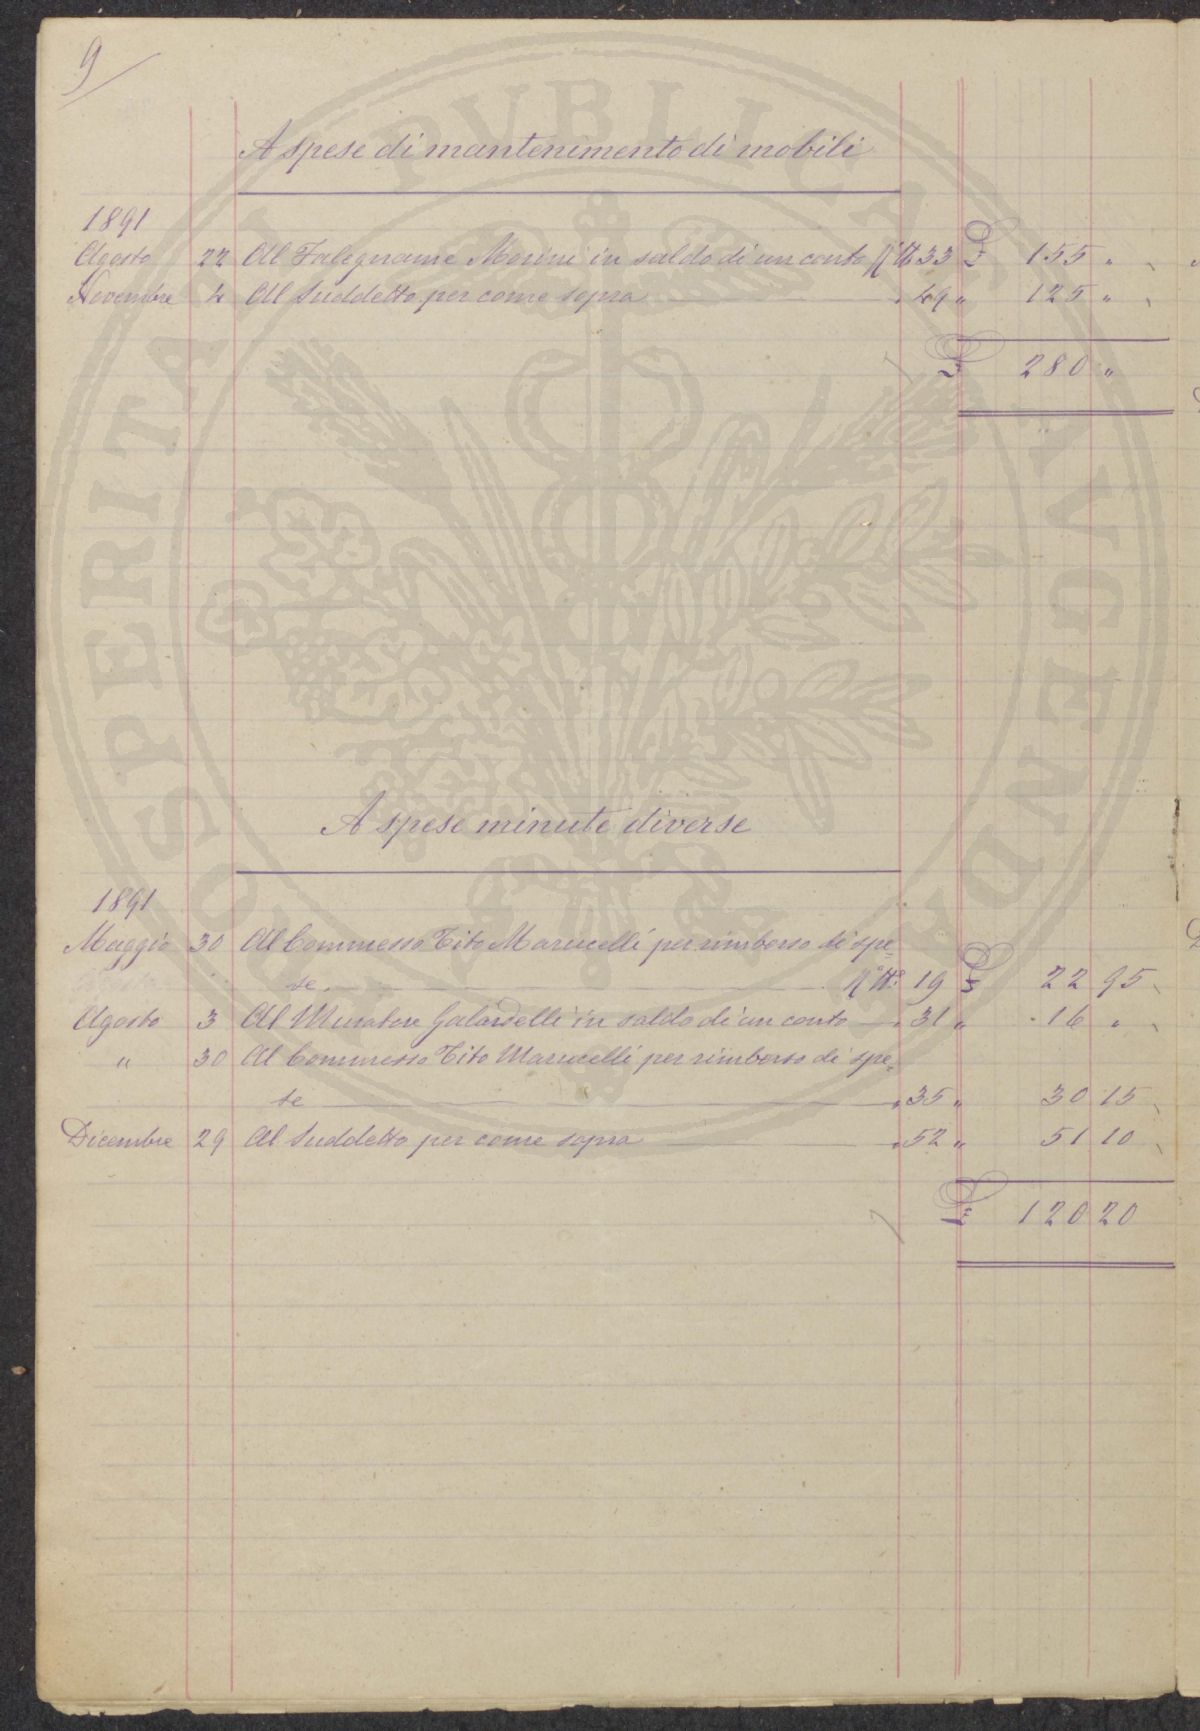 9
A spese di mantenimento di mobili
1891
Agosto 22 Al Falegname Morini in saldo di un conto N° 33 £ 155 "
Novembre 4 Al Suddetto per come sopra " 49 " 125 "
£ 280 "
A spese minute diverse
1891
Maggio 30 Al Commesso Tito Marucelli per rimborso di spe=
se. N° 19 £ 22 95
Agosto 3 Al Muratore Galardelli in saldo di un conto 31 " 16 "
" 30 Al Commesso Tito Marucelli per rimborso di spe=
se " 35 " 30 15
Dicembre 29 Al Suddetto per come sopra " 52 " 51 10
£ 120 20
PROSPERITATI PVBLICAE AVGENDAE